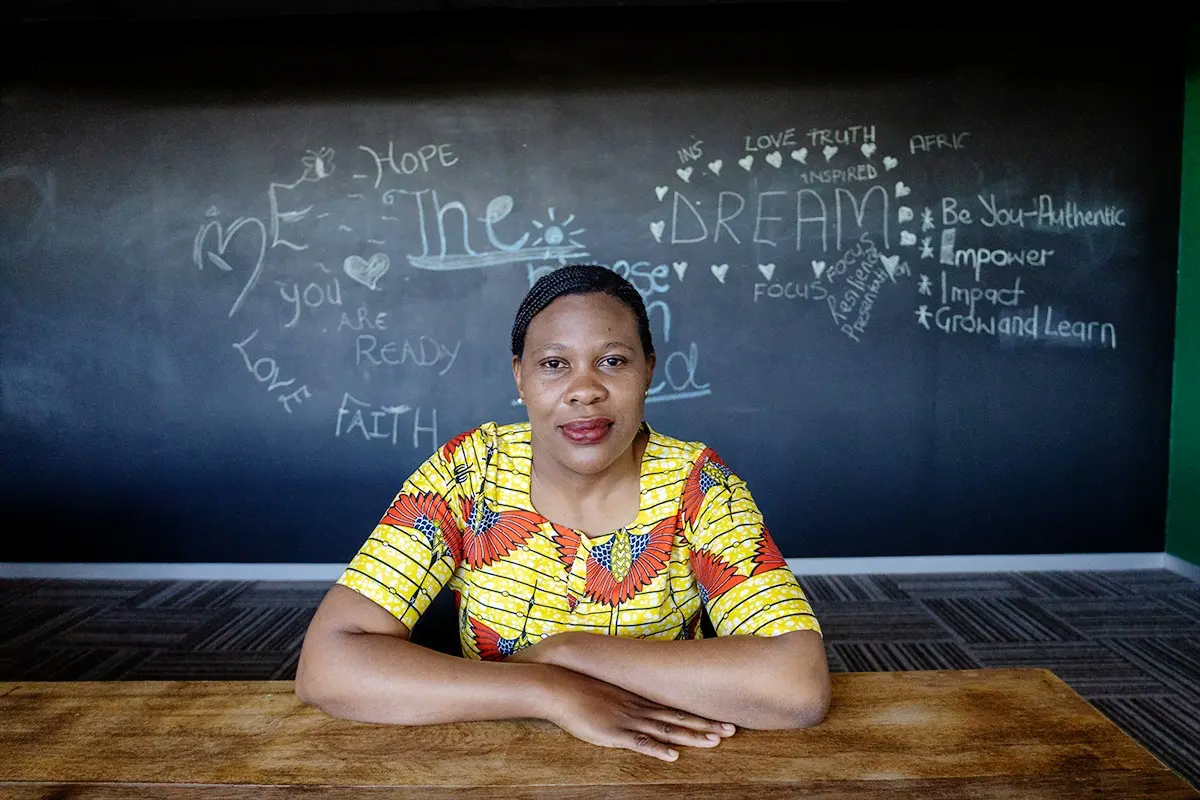 HOPE
The
you
ARE
READY
LOVE
FAITH
LOVE TRUTH
INSPIRED
AFRIC
DREAM
FOCUS
FOCUS
Resilience
Presentation
* Be You-Authentic
* Empower
* Impact
* Grow and Learn